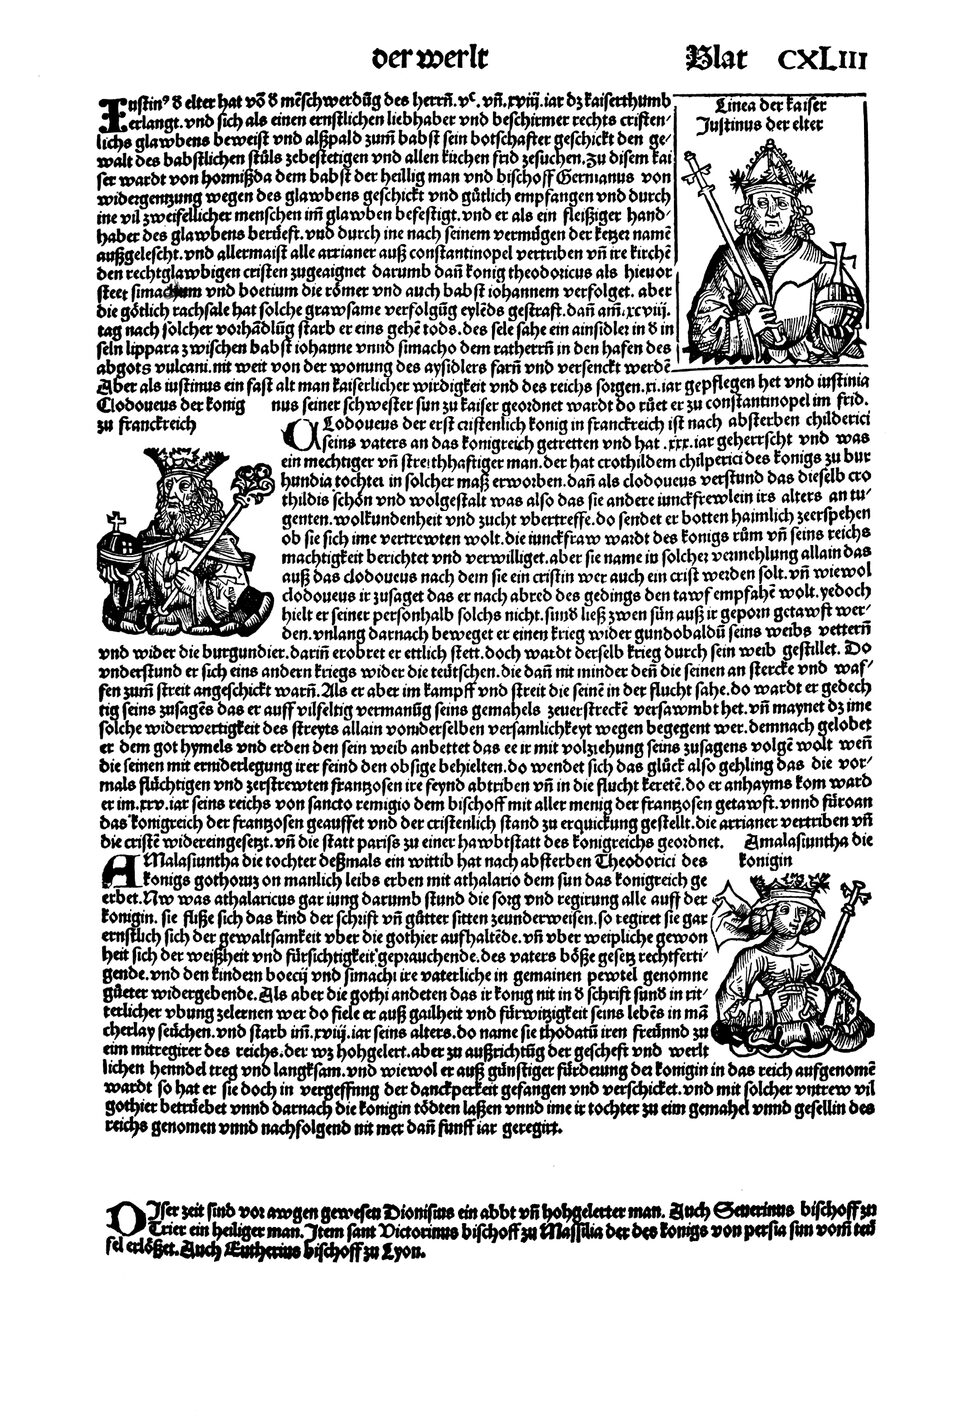 der werlt Blat CXLIII
Linea der kaiser
Justinus der elter
Iustin⁹ d̕ elter hat võ d̕ mẽschwerdũg des herrñ. vᶜ. vñ. xviij. iar dz kaiserthumb
erlangt. vnd sich als einen ernstlichen liebhaber vnd beschirmer rechts cristen-
lichs glawbens beweist vnd alßpald zum̃ babst sein botschafter geschickt den ge-
walt des babstlichen stůls zebestetigen vnd allen kirchen frid zesuchen. Zu disem kai
ser wardt von hormißda dem babst der heillig man vnd bischoff Germanus von
widergentzung wegen des glawbens geschickt vnd gůtlich empfangen vnd durch
ine vil zweifellicher menschen im̃ glawben befestigt. vnd er als ein fleißiger hand-
haber des glawbens berůeft. vnd durch ine nach seinem vermůgen der ketzer namẽ
außgelescht. vnd allermaist alle arrianer auß constantinopel vertriben vñ ire kirchẽ
den rechtglawbigen cristen zugeaignet darumb dañ konig theodoricus als hieuor
steet simachum vnd boetium die rômer vnd auch babst iohannem verfolget. aber
die gôtlich rachsale hat solche grawsame verfolgũg eylẽds gestraft. dañ am̃. xcviij.
tag nach solcher vorhãdlũg starb er eins gehẽ tods. des sele sahe ein ainsidler in d̕ in
seln lippara zwischen babst iohanne vnnd simacho dem ratherrñ in den hafen des
abgots vulcani. nit weit von der wonung des aysidlers farñ vnd versenckt werdẽ
Aber als iustinus ein fast alt man kaiserlicher wirdigkeit vnd des reichs sorgen. xi. iar gepflegen het vnd iustinia
nus seiner schwester sun zu kaiser geordnet wardt do růet er zu constantinopel im frid.
Clodoueus der konig
zu franckreich
CLodoueus der erst cristenlich konig in franckreich ist nach absterben childerici
seins vaters an das konigreich getretten vnd hat .xxx. iar geherrscht vnd was
ein mechtiger vñ streithhaftiger man. der hat crothildem chilperici des konigs zu bur
hundia tochter in solcher maß erworben. dañ als clodoueus verstund das dieselb cro
thildis schôn vnd wolgestalt was also das sie andere iunckfrewlein irs alters an tu-
genten. wolkundenheit vnd zucht vbertreffe. do sendet er botten haimlich zeerspehen
ob sie sich ime vertrewten wolt. die iunckfraw wardt des konigs rům vñ seins reichs
machtigkeit berichtet vnd verwilliget. aber sie name in solcher vermehlung allain das
auß das clodoueus nach dem sie ein cristin wer auch ein crist werden solt. vñ wiewol
clodoueus ir zusaget das er nach abred des gedings den tawf empfahẽ wolt. yedoch
hielt er seiner personhalb solchs nicht. sund ließ zwen sün auß ir geporn getawft wer-
den. vnlang darnach beweget er einen krieg wider gundobaldũ seins weibs vetterñ
vnd wider die burgundier. dariñ erobret er ettlich stett. doch wardt derselb krieg durch sein weib gestillet. Do
vnderstund er sich eins andern kriegs wider die teütschen. die dañ nit minder deñ die seinen an stercke vnd waf-
fen zum̃ streit angeschickt warñ. Als er aber im kampff vnd streit die seinẽ in der flucht sahe. do wardt er gedech
tig seins zusagẽs das er auff vilfeltig vermanũg seins gemahels zeuerstreckẽ versawmbt het. vñ maynet dz ime
solche widerwertigkeit des streyts allain von derselben versamlichkeyt wegen begegent wer. demnach gelobet
er dem got hymels vnd erden den sein weib anbettet das ee ir mit volziehung seins zusagens volgẽ wolt weñ
die seinen mit erniderlegung irer feind den obsige behielten. do wendet sich das glůck also gehling das die vor-
mals flůchtigen vnd zerstrewten frantzosen ire feynd abtriben vñ in die flucht keretẽ. do er anhayms kom ward
er im. xxv. iar seins reichs von sancto remigio dem bischoff mit aller menig der frantzosen getawft. vnnd fůroan
das konigreich der frantzosen geauffet vnd der cristenlich stand zu erquickung gestellt. die arrianer vertriben vñ
die cristẽ widereingesetzt. vñ die statt pariss zu einer hawbtstatt des konigreichs geordnet.
Amalasiuntha die
konigin
AMalasiuntha die tochter deßmals ein wittib hat nach absterben Theodorici des
konigs gothorum on manlich leibs erben mit athalario dem sun das konigreich ge
erbet. Nw was athalaricus gar iung darumb stund die sorg vnd regirung alle auff der
konigin. sie fliße sich das kind der schrift vñ gůtter sitten zeunderweisen. so regiret sie gar
ernstlich sich der gewaltsamkeit vber die gothier aufhaltẽde. vñ vber weipliche gewon
heit sich der weißheit vnd fůrsichtigkeit geprauchende. des vaters bôße gesetz rechtferti-
gende. vnd den kindern boecij vnd simachi ire vaterliche in gemainen pewtel genomne
gůeter widergebende. Als aber die gothi andeten das ir konig nit in d̕ schrift sund in rit-
terlicher vbung zelernen wer do fiele er auß gailheit vnd fůrwitzigkeit seins lebẽs in mã
cherlay seůchen. vnd starb im̃. xviij. iar seins alters. do name sie thodatũ iren freůnnd zu
eim mitregirer des reichs. der wz hohgelert. aber zu außrichtũg der gescheft vnd werlt
lichen henndel treg vnd langksam. vnd wiewol er auß gůnstiger fůrderung der konigin in das reich aufgenomẽ
wardt so hat er sie doch in vergessung der danckperkeit gefangen vnd verschicket. vnd mit solcher vntrew vil
gothier betrůebet vnnd darnach die konigin tôdten laßen vnnd ime ir tochter zu eim gemahel vnnd gesellin des
reichs genomen vnnd nachfolgend nit mer dañ funff iar geregirt.
DIser zeit sind vor awgen gewesen Dionisius ein abbt vñ hohgelerter man. Auch Seuerinus bischoff zu
Trier ein heiliger man. Item sant Victorinus bischoff zu Massilia der des konigs von persia sun vom̃ teü
fel erlôßet. Auch Eutherius bischoff zu Lyon.